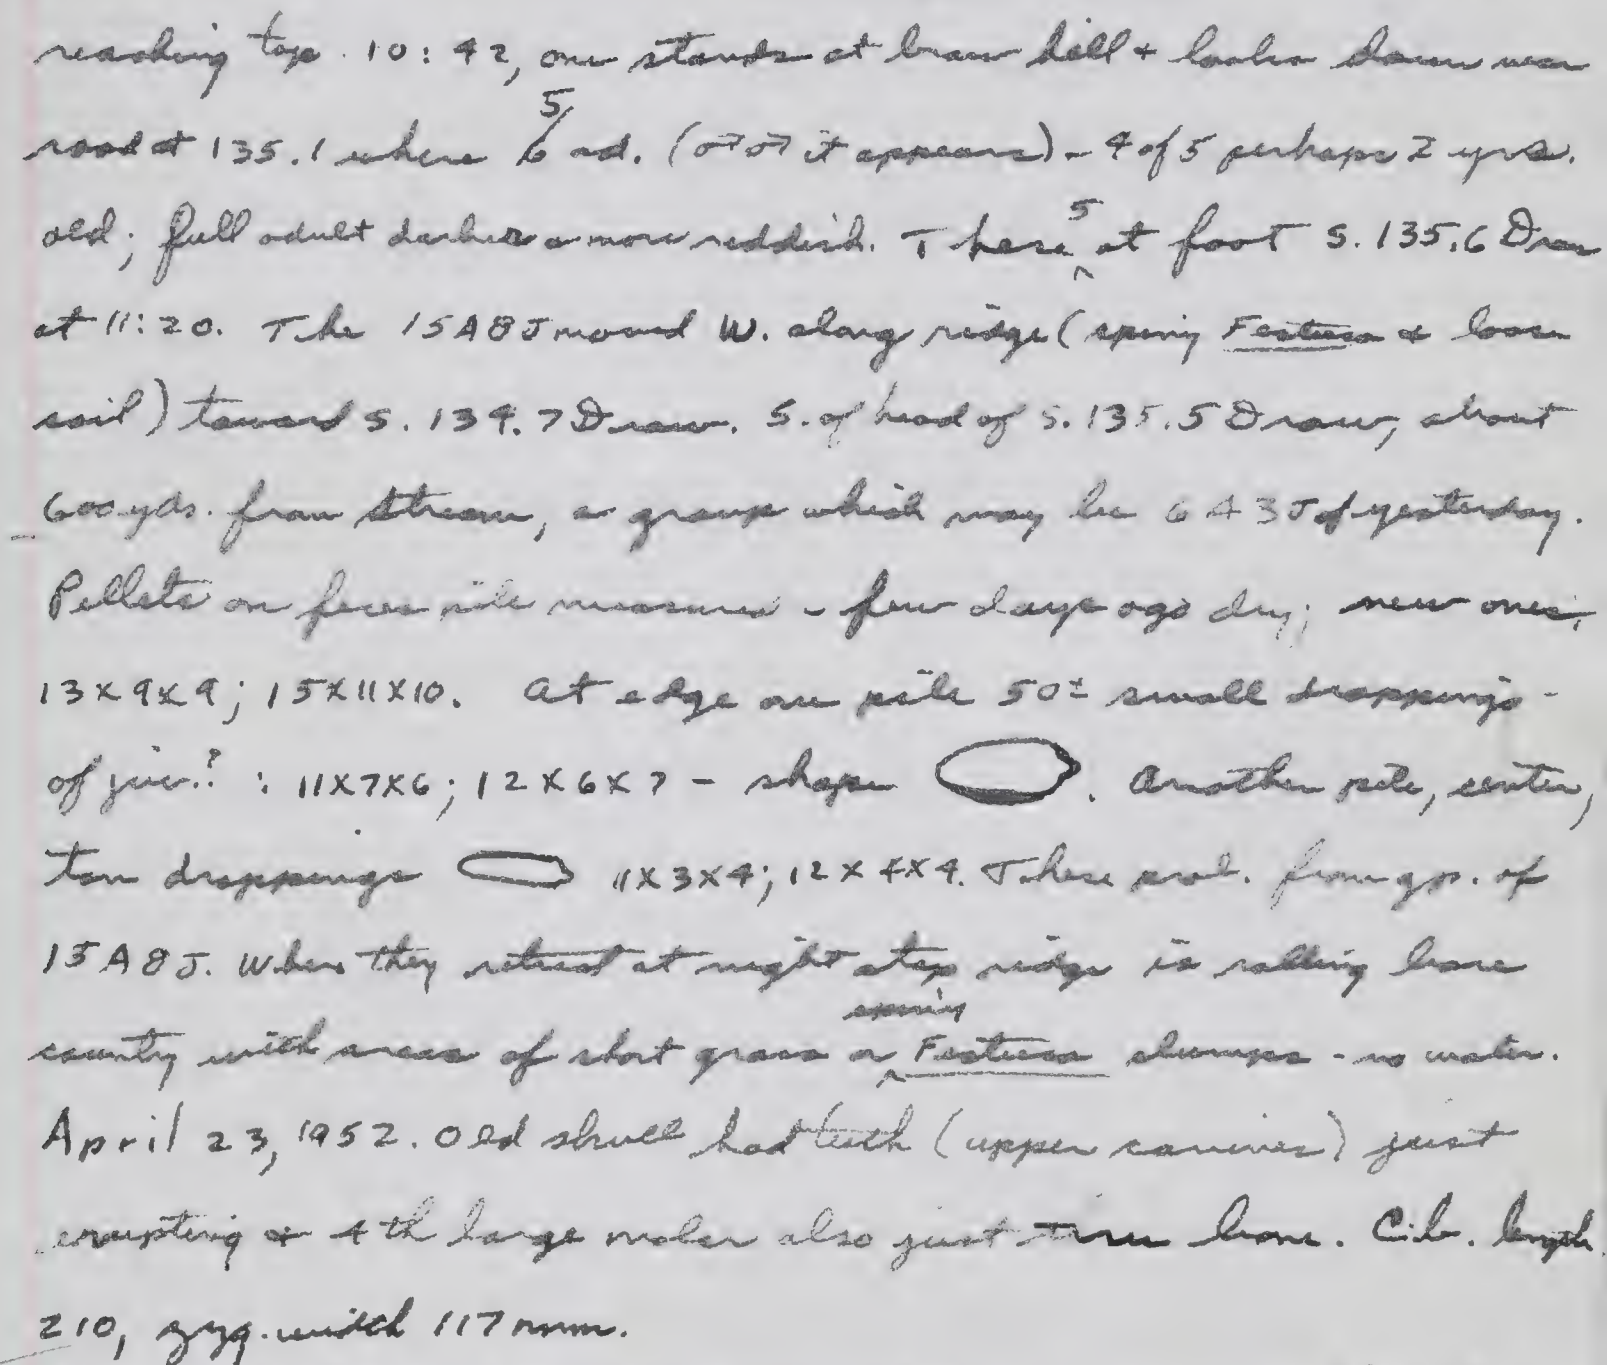 reaching top. 10:42, one stands at brow hill & looks down near
5
road at 135.1 where 6 ad. (♂♂ it appears) - 4 of 5 perhaps 2 yrs.
old; full adult darker & more reddish. These 5 at foot S. 135.6 Draw
at 11:20. The 15A8J moved W. along ridge (spiny Festuca & loose
soil) toward S. 134.7 Draw. S. of head of S. 135.5 Draw, about
600 yds. from stream, a group which may be 6A3J of yesterday.
Pellets on feces pile measured - few days ago dry; new ones,
13x9x9; 15x11x10. At edge one pile 50± small droppings -
of juv.? : 11x7x6; 12x6x7 - shape . Another pile, center,
tan droppings 11x3x4; 12x4x4. These prob. from gp. of
15A8J. Where they retreat at night atop ridge is rolling bare
spiny
country with areas of short grass or Festuca clumps - no water.
April 23, 1952. Old skull had teeth (upper canines) just
erupting & 4th large molar also just thru bone. C.b. length
210, zyg. width 117 mm.